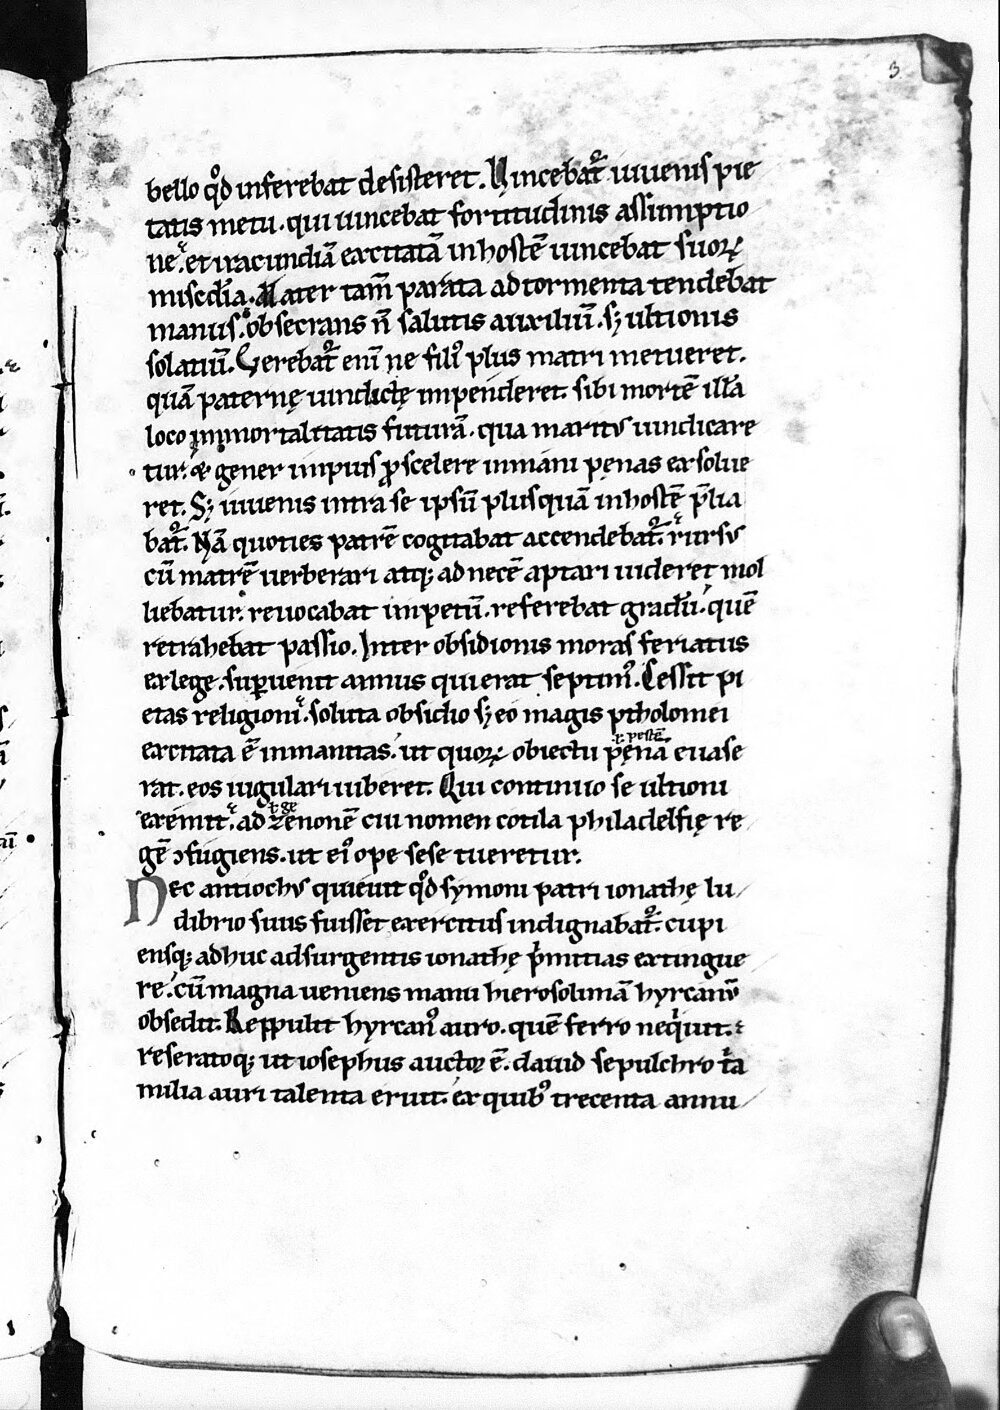 3
bello qͦd inferebat desisteret. Vincebat᷑ iuuenis pie
tatis metu. qui uincebat fortitudinis assumptio
ne. et iracundiā excitatā in hostē uincebat suoꝝ
miscd̄ia. Mater tam̄ parata ad tormenta tendebat
manus. obsecrans n̄ salutis auxiliū. sꝫ ultionis
solatiū. Verebat᷑ eni᷑ ne filiꝰ plus matri metueret.
quā paternę uindictę impenderet. sibi mortē illā
loco immortalitatis futurā. qua maritus uindicare
tur. & gener impius ꝓ scelere inmani penas exsolue
ret. Sꝫ iuuenis intra se ipsū plusquā in hostē p̄lia
bat᷑. Nā quoties patrē cogitabat accendebat᷑. rursus
cū matrē uerberari atqꝫ ad necē aptari uideret mol
liebatur. reuocabat impetū. referebat gradū. quē
retrahebat passio. Inter obsidionis moras feriatus
ex lege. suꝑuenit annus qui erat septimꝰ. Cessit pi
etas religioni. soluta obsidio sꝫ eo magis ptholomei
excitata ē inmanitas. ut quoꝝ obiectu p̄ęnā euase
rat. eos iugulari iuberet. Qui continuo se ultioni
exemit. ad zenonē cui nomen cotila philadelfię re
gē ꝯfugiens. ut eiꝰ ope sese tueretur.
Nec antiochus quieuit qͦd symoni patri ionathę lu
dibrio suus fuisset exercitus indignabat᷑. cupi
ensqꝫ adhuc adsurgentis ionathę p̄mitias extingue
re. cū magna ueniens manu hierosolimā hyrcanū
obsedit. Reppulit hyrcanꝰ auro. quē ferro neqͥuit.
reseratoqꝫ ut iosephus auctor ē. dauid sepulchro tͥa
milia auri talenta eruit. ex quibꝰ trecenta annu